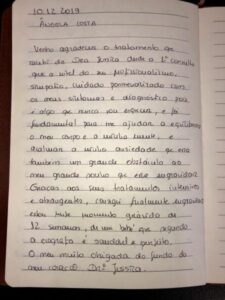 10.12.2019
Ângela Costa
Venho agradecer o tratamento que
recebi da Dra Jessica desde a 1ª consulta
que a nível do seu profissionalismo,
simpatia, cuidado personalizado com
os meus sintomas e diagnóstico foi
algo que nunca vou esquecer, e foi
fundamental para me ajudar a equilibrar
o meu corpo e a minha mente, e
acalmar a minha ansiedade que era
também um grande obstáculo ao
meu grande sonho que era engravidar.
Graças aos seus tratamentos intensivos
e abrangentes, consegui finalmente engravidar
estou neste momento grávida de
12 semanas, de um bebé que segundo
a ecografia é saudável e perfeito.
O meu muito obrigada do fundo do
meu coração Drª Jessica.